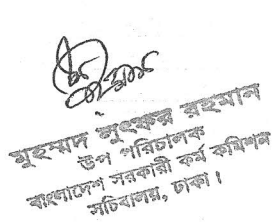 মুহম্মদ লুৎফর রহমান
উপ পরিচালক
বাংলাদেশ সরকারী কর্ম কমিশন
সচিবালয়, ঢাকা।